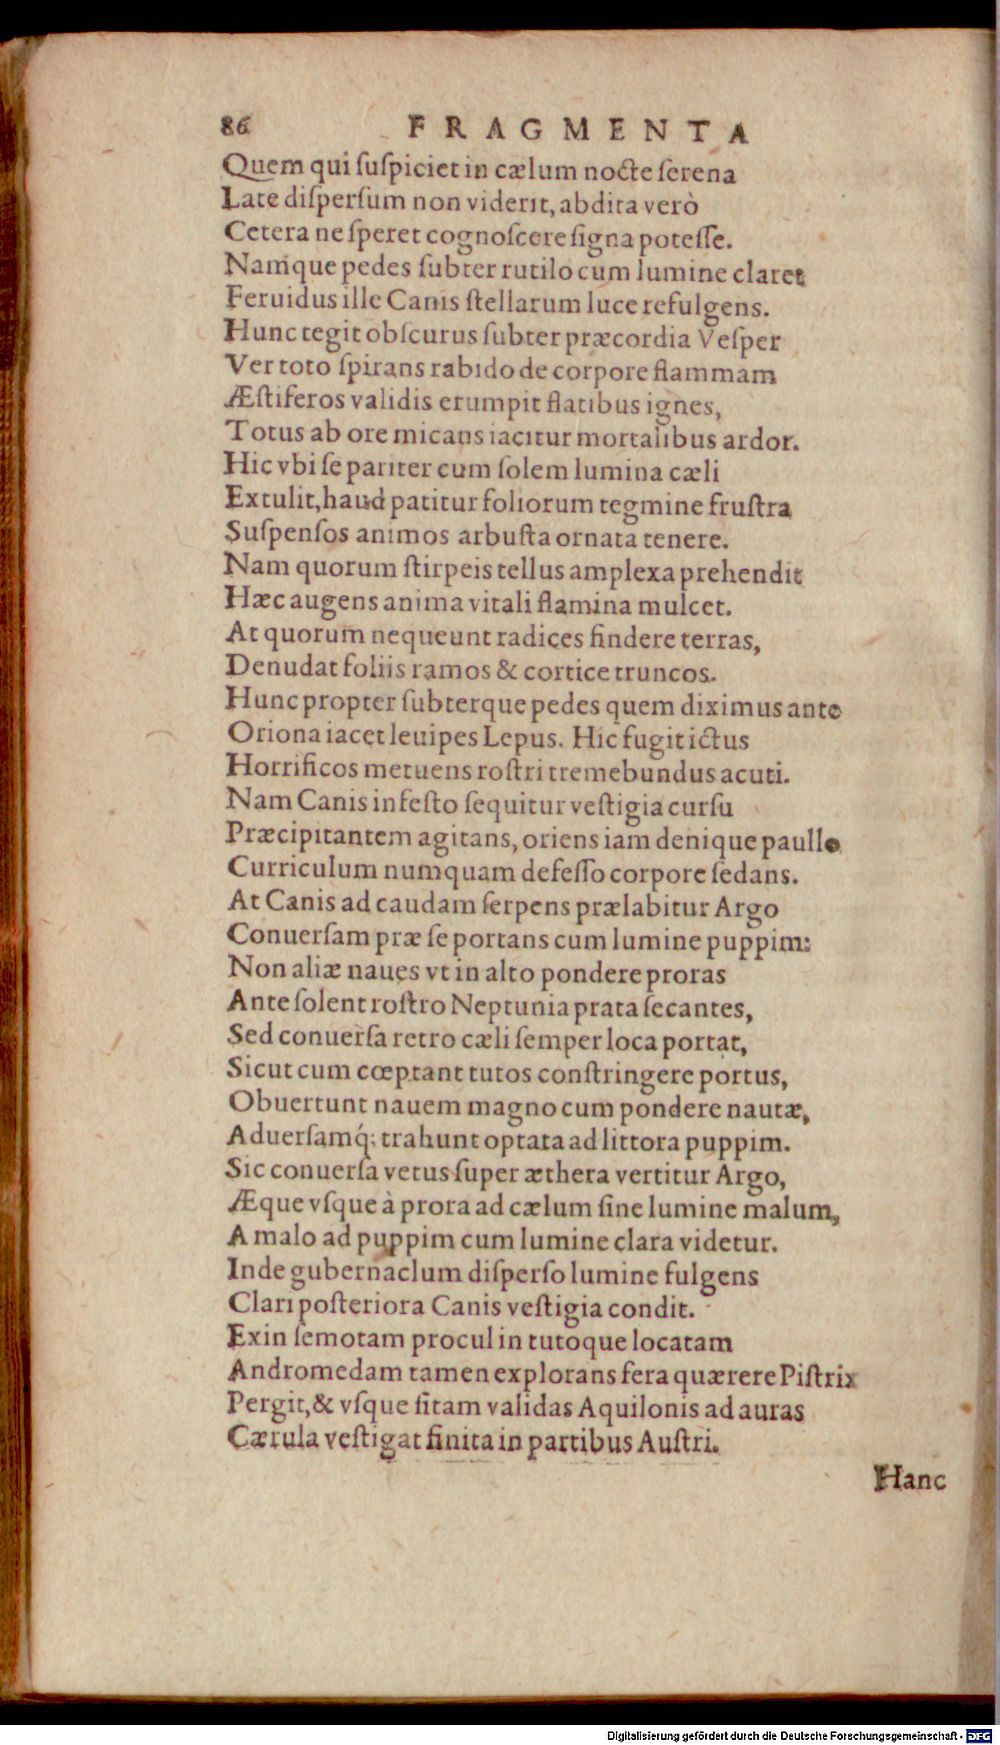 86 FRAGMENTA
Quem qui ſuſpiciet in cælum nocte ſerena
Late diſperſum non viderit, abdita verò
Cetera ne ſperet cognoſcere ſigna poteſſe.
Namque pedes ſubter rutilo cum lumine claret
Feruidus ille Canis ſtellarum luce refulgens.
Hunc tegit obſcurus ſubter præcordia Veſper
Ver toto ſpirans rabido de corpore flammam
Æſtiferos validis erumpit flatibus ignes,
Totus ab ore micans iacitur mortalibus ardor.
Hic vbi ſe pariter cum ſolem lumina cæli
Extulit, haud patitur foliorum tegmine fruſtra
Suſpenſos animos arbuſta ornata tenere.
Nam quorum ſtirpeis tellus amplexa prehendit
Hæc augens anima vitali flamina mulcet.
At quorum nequeunt radices findere terras,
Denudat foliis ramos & cortice truncos.
Hunc propter ſubterque pedes quem diximus ante
Oriona iacet leuipes Lepus. Hic fugit ictus
Horrificos metuens roſtri tremebundus acuti.
Nam Canis infeſto ſequitur veſtigia curſu
Præcipitantem agitans, oriens iam denique paullo
Curriculum numquam defeſſo corpore ſedans.
At Canis ad caudam ſerpens prælabitur Argo
Conuerſam præ ſe portans cum lumine puppim:
Non aliæ naues vt in alto pondere proras
Ante ſolent roſtro Neptunia prata ſecantes,
Sed conuerſa retro cæli ſemper loca portat,
Sicut cum cœptant tutos conſtringere portus,
Obuertunt nauem magno cum pondere nautæ,
Aduerſamq́; trahunt optata ad littora puppim.
Sic conuerſa vetus ſuper æthera vertitur Argo,
Æque vſque à prora ad cælum ſine lumine malum,
A malo ad puppim cum lumine clara videtur.
Inde gubernaclum diſperſo lumine fulgens
Clari poſteriora Canis veſtigia condit.
Exin ſemotam procul in tutoque locatam
Andromedam tamen explorans fera quærere Piſtrix
Pergit, & vſque ſitam validas Aquilonis ad auras
Cærula veſtigat finita in partibus Auſtri.
Hanc
Digitalisierung gefördert durch die Deutsche Forschungsgemeinschaft - DFG